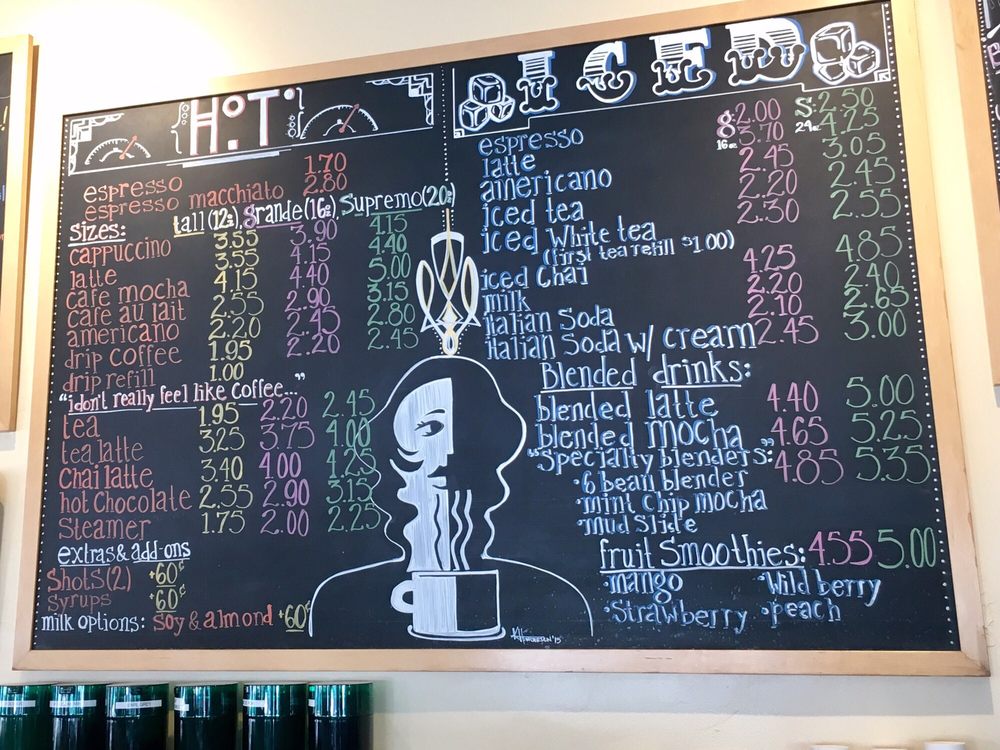 HOT
espresso 1.70
espresso macchiato 2.80
sizes: tall (12z), grande (16z), Supremo (20z)
cappuccino 3.55 3.90 4.15
latte 3.55 4.15 4.40
cafe mocha 4.15 4.40 5.00
cafe au lait 2.55 2.90 3.15
americano 2.20 2.45 2.80
drip coffee 1.95 2.20 2.45
drip refill 1.00
"i don't really feel like coffee..."
tea 1.95 2.20 2.45
tea latte 3.25 3.75 4.00
Chai latte 3.40 4.00 4.25
hot Chocolate 2.55 2.90 3.15
Steamer 1.75 2.00 2.25
extras & add-ons
Shots (2) +60¢
syrups +60¢
milk options: soy & almond +60¢
ICED
g: 16oz S: 24oz
espresso 2.00 2.50
latte 3.70 4.25
americano 2.45 3.05
iced tea 2.20 2.45
iced White tea 2.30 2.55
(first tea refill $1.00)
iced Chai 4.25 4.85
milk 2.20 2.40
Italian Soda 2.10 2.65
Italian Soda w/ cream 2.45 3.00
Blended drinks:
blended latte 4.40 5.00
blended mocha 4.65 5.25
"Specialty blenders:" 4.85 5.35
·6 bean blender
·mint Chip mocha
·Mud Slide
fruit Smoothies: 4.55 5.00
·mango ·Wild berry
·Strawberry ·peach